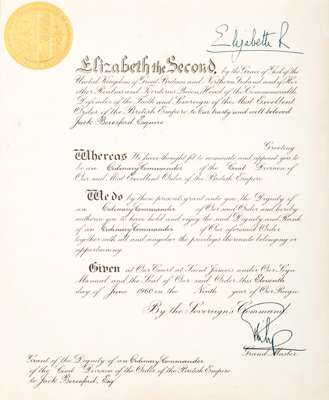 Elizabeth R
Elizabeth the Second, by the Grace of God of the
United Kingdom of Great Britain and Northern Ireland and of Her
other Realms and Territories Queen, Head of the Commonwealth,
Defender of the Faith and Sovereign of the Most Excellent
Order of the British Empire to Our trusty and well beloved
Jack Beresford Esquire
Greeting
Whereas We have thought fit to nominate and appoint you to
be an Ordinary Commander of the Civil Division of
Our said Most Excellent Order of the British Empire
We do by these presents grant unto you the Dignity of
an Ordinary Commander of Our said Order and hereby
authorise you to have hold and enjoy the said Dignity and Rank
of an Ordinary Commander of Our aforesaid Order
together with all and singular the privileges thereunto belonging or
appertaining.
Given at Our Court at Saint James's under Our Sign
Manual and the Seal of Our said Order this Eleventh
day of June 1960 in the Ninth year of Our Reign
By the Sovereign's Command
Philip
Grand Master
Grant of the Dignity of an Ordinary Commander
of the Civil Division of the Order of the British Empire
to Jack Beresford, Esq